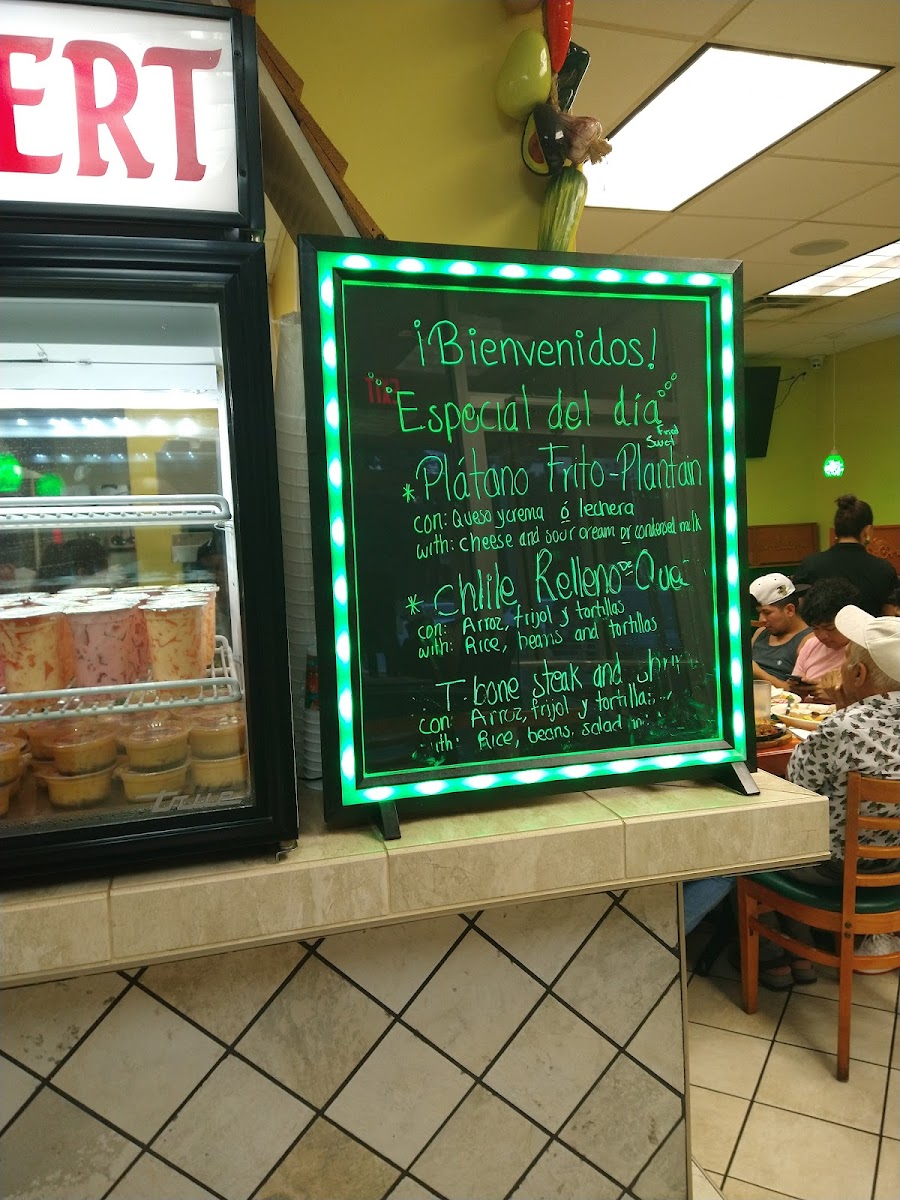 ERT
¡Bienvenidos!
Especial del día
Fried
Sweet
* Plátano Frito-Plantain
con: Queso y crema ó lechera
with: cheese and sour cream or condensed milk
* chlile Relleno DE
con: Arroz, frijol y tortillas
with: Rice, beans and tortillas
T-bone steak and
con: Arroz, frijol y tortillas
with: Rice, beans, salad
true